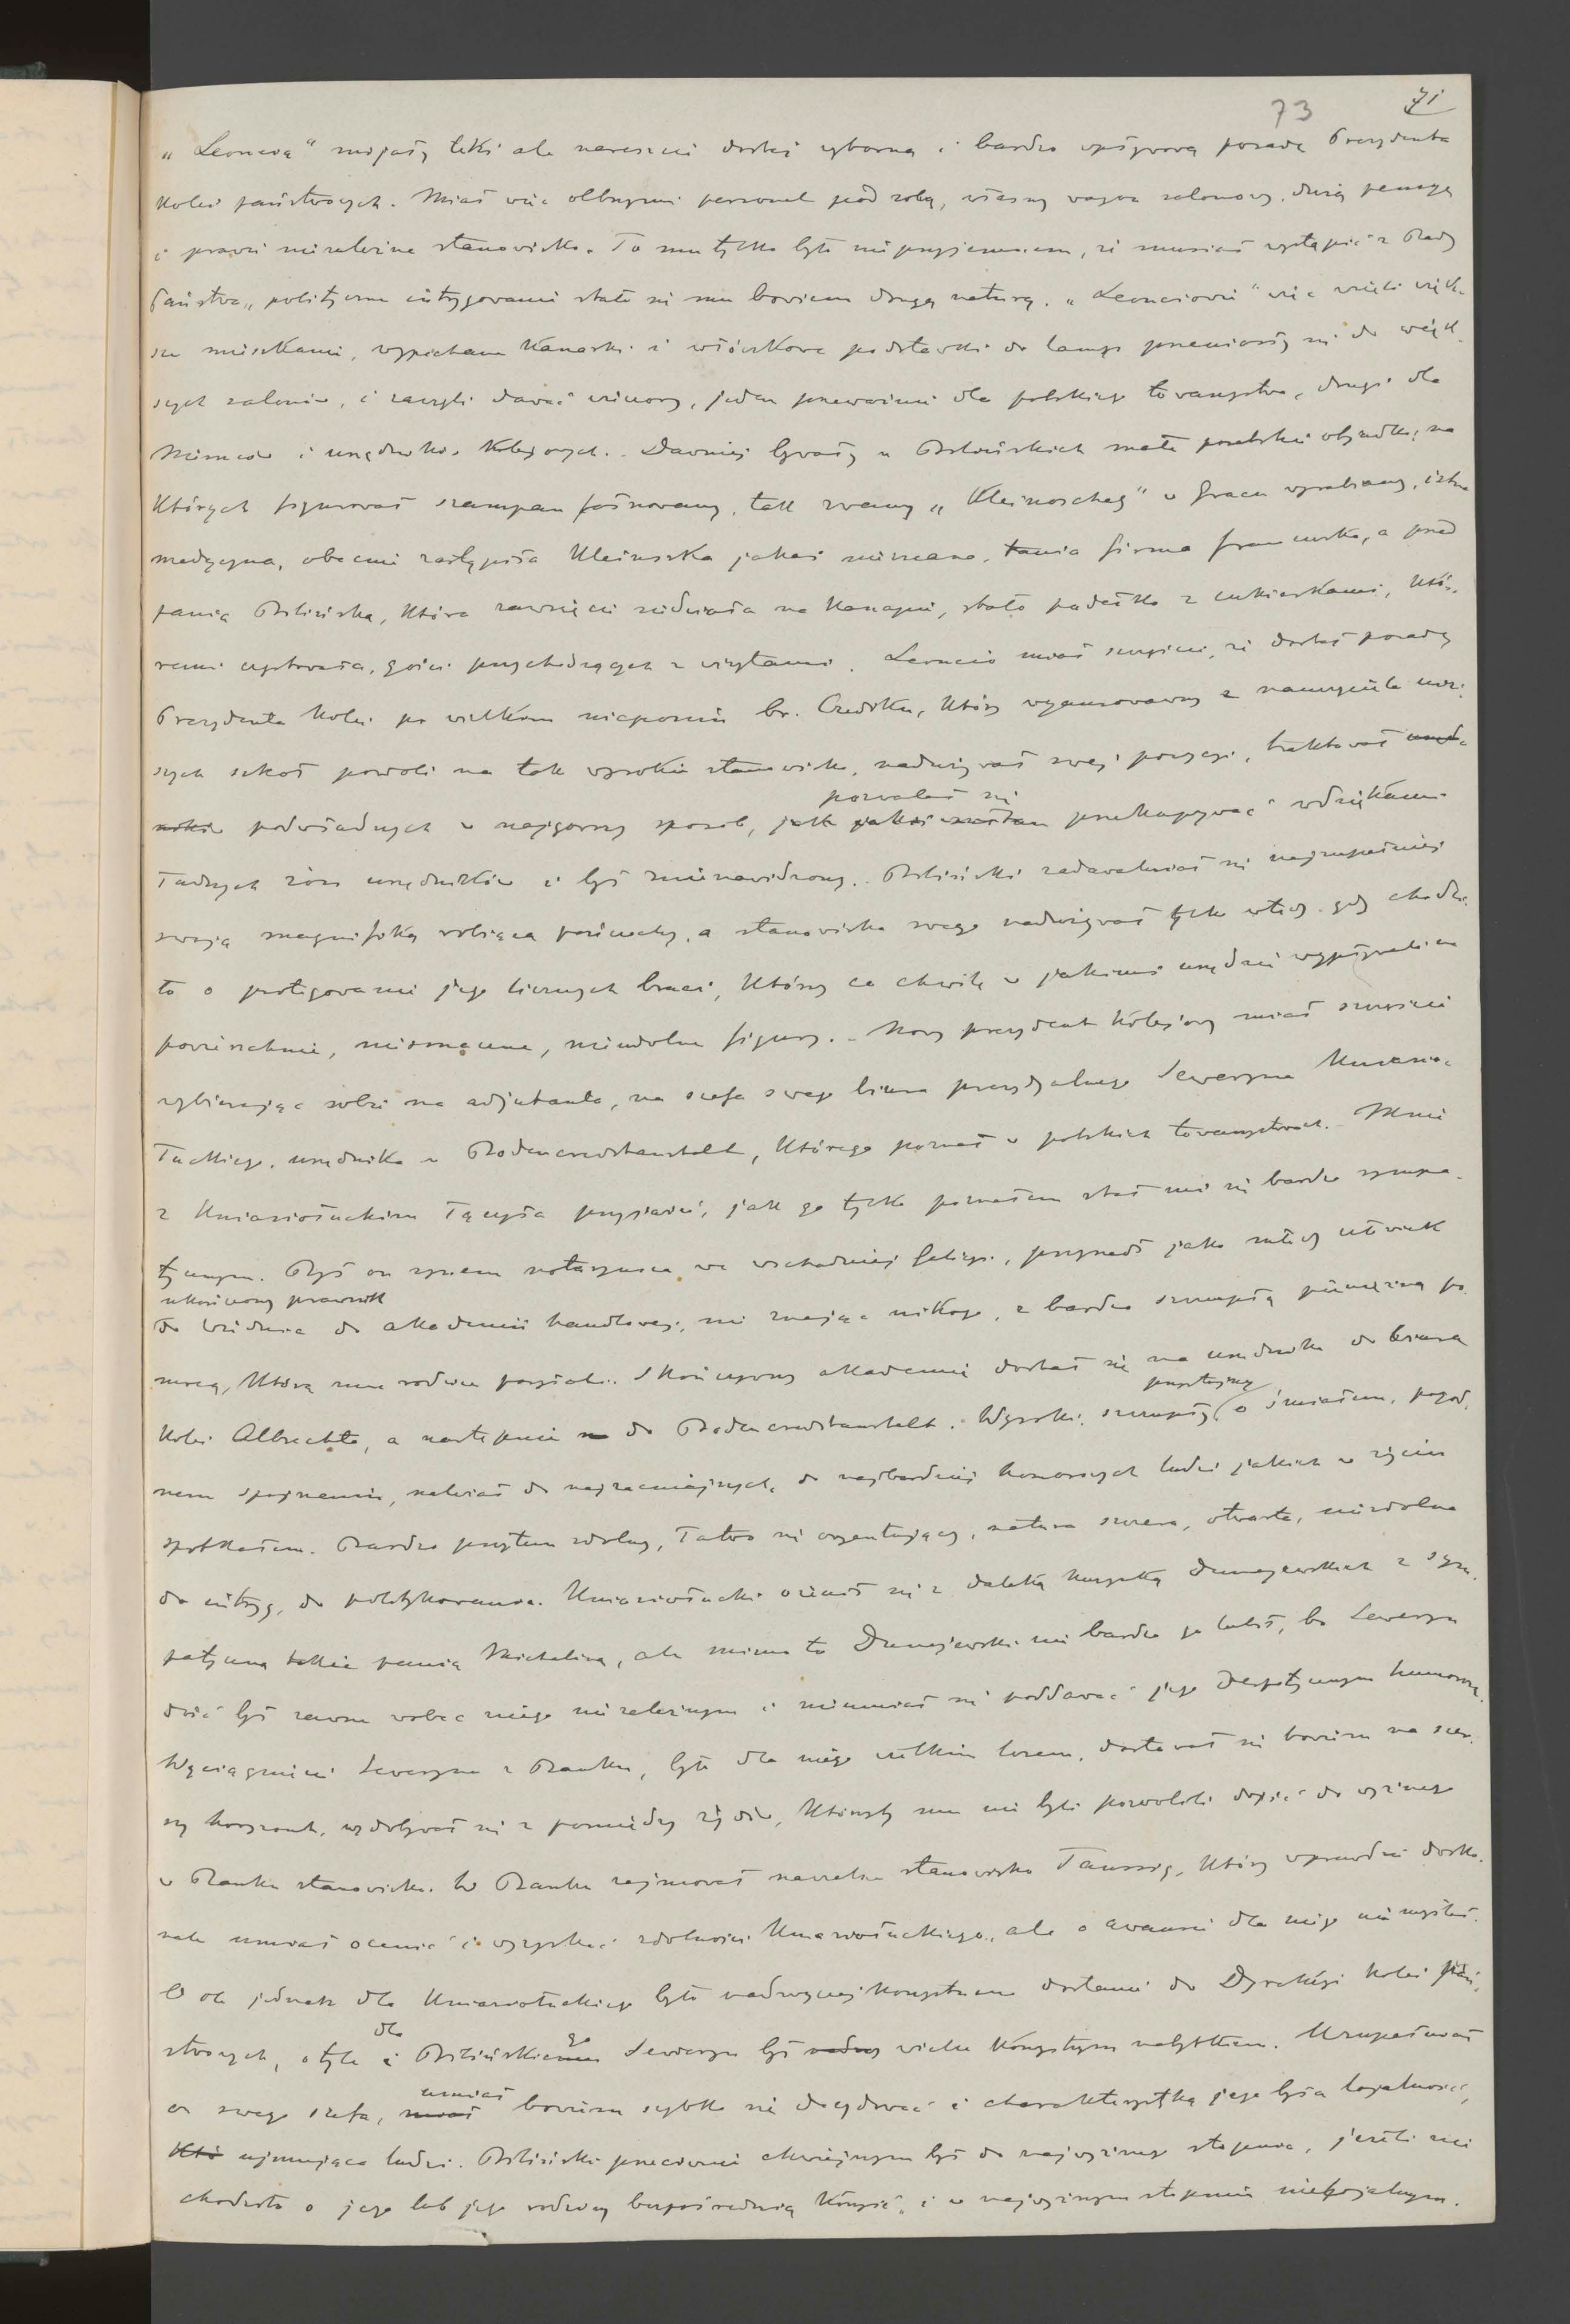 73 71
„Leoncia" mijały teki ale nareszcie dostał wyborną i bardzo wpływową posadę Prezydenta
kolei państwowych. Miał więc olbrzymi personel pod sobą, własny wagon salonowy, dużą pensyę
i prawie niezależne stanowisko. To mu tylko było nieprzyjemnem, że musiał wystąpić z Rady
Państwa, polityczne intrygowanie stało się mu bowiem drugą naturą. „Leonciowie" więc wzięli więk-
sze mieszkanie, wypchane kanarki i włóczkowe podstawki do lamp przeniosły się do więk-
szych salonów, i zaczęli dawać wieczory, jeden przeważnie dla polskiego towarzystwa, drugi dla
Niemców i urzędników kolejowych. Dawniej bywały u Bilińskich małe poselskie obiadki, na
których figurował szampan fałszowany, tak zwany „Kleinoscheg" w Gracu wyrabiany, istna
medycyna, obecnie zastąpiła Kleinoszka jakaś nieznana, tania firma francuska, a przed
panią Bilińską, która zawsze siedziała na kanapie, stało pudełko z cukierkami, któ-
remi częstowała gości przychodzących z wizytami. Leoncio miał szczęście, że dostał posadę
Prezydenta kolei po wielkim niepoczciu br. Czediku, który wyawansowawszy z nauczyciela niż-
szych szkół powoli na tak wysokie stanowisko, nadużywał swej pozycyi, traktował urzęd-
ników podwładnych w najgorszy sposób, jak jakiś sułtan pozwalał się przekupywać wdziękami
ładnych żon urzędników i był znienawidzony. Biliński zadawalniał się najzupełniej
swoją magnifiką robiącą pończochy, a stanowiska swego nadużywał tylko wtedy gdy chodzi-
ło o protegowanie jego licznych braci, którzy co chwilę w jakimś urzędzie wypływali na
powierzchnię, niesmaczne, nieudolne figury. Nowy prezydent kolejowy miał szczęście
wybierając sobie na adjutanta, na szefa swego biura prezydyalnego Seweryna Kniazio-
łuckiego, urzędnika w Bodencreditanstalt, którego poznał w polskich towarzystwach. Mnie
z Kniaziołuckim łączyła przyjaźń, jak go tylko poznałem stał mi się bardzo sympa-
tycznym. Był on synem notaryusza we wschodniej Galicyi, przyszedł jako młody człowiek
ukończony prawnik
do Wiednia do akademii handlowej, nie znając nikogo, z bardzo szczupłą pieniężną po-
mocą, którą mu rodzice posyłali. Skończywszy akademię dostał się na urzędnika do biura
kolei Albrechta, a następnie do Bodencreditanstalt. Wysoki, szczupły, przystojny o śmiałem, pogod-
nem spojrzeniu, należał do najzacniejszych, do najbardziej honorowych ludzi jakich w życiu
spotkałem. Bardzo przytem zdolny, łatwo się oryentujący, natura szczera, otwarta, niezdolna
do intryg, do politykowania. Kniaziołucki ożenił się z daleką kuzynką Dunajewskich z sym-
patyczną panią Michaliną, ale mimo to Dunajewski nie bardzo go lubił, bo Seweryn
dość był zawsze wobec niego niezależnym i nieumiał się poddawać jego despotycznym humorom.
Wyciągnięcie Seweryna z Banku, było dla niego wielkim losem, dostawał się bowiem na szer-
szy horyzont, wydobywał się z pomiędzy żydów, którzyby mu nie byli pozwolili dojść do wyższego
w Banku stanowiska. W Banku zajmował naczelne stanowisko Taussig, który wprawdzie dosko-
nale umiał ocenić i wyzyskać zdolności Kniaziołuckiego, ale o awansie dla niego nie myślał.
O ile jednak dla Kniaziołuckiego było nadzwyczaj korzystnem dostanie do Dyrekcyi kolei pań-
stwowych, o tyle i dla Bilińskiego Seweryn był wielce korzystnym nabytkiem. Uzupełniał
on swego szefa, umiał bowiem szybko się decydować i charakterystyką jego była lojalność,
ujmująca ludzi. Biliński przeciwnie chwiejnym był do najwyższego stopnia, jeżeli nie
chodziło o jego lub jego rodziny bezpośrednią korzyść, i w najwyższym stopniu nielojalnym.